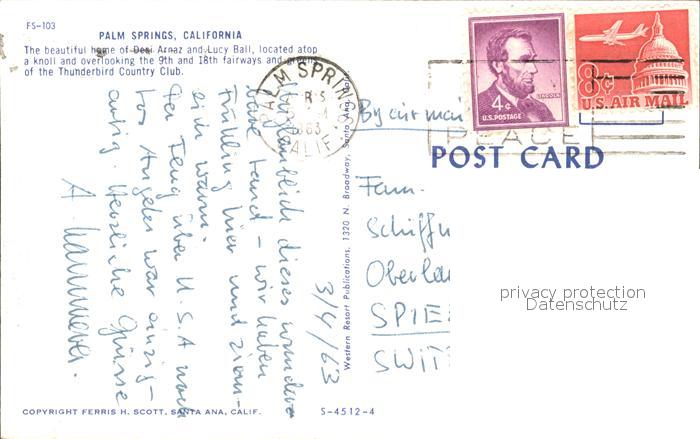 FS-103
PALM SPRINGS, CALIFORNIA
The beautiful home of Desi Arnaz and Lucy Ball, located atop
a knoll and overlooking the 9th and 18th fairways and greens
of the Thunderbird Country Club.
PALM SPRINGS
1963
CALIF.
4¢
LINCOLN
U.S. POSTAGE
8¢
U.S. AIR MAIL
PEACE
By air mail
POST CARD
3/4/63
Unglaublich dieses wunder-
bare Land - wir haben
Frühling hier und
warm.
Der Flug über U.S.A nach
Los Angeles war einzig-
artig. Herzliche Grüsse
A.
Fam.
Schiffn
Oberla
SPIE
SWIT
privacy protection
Datenschutz
Western Resort Publications, 1320 N. Broadway, Santa Ana, Calif.
COPYRIGHT FERRIS H. SCOTT, SANTA ANA, CALIF.
S-4512-4